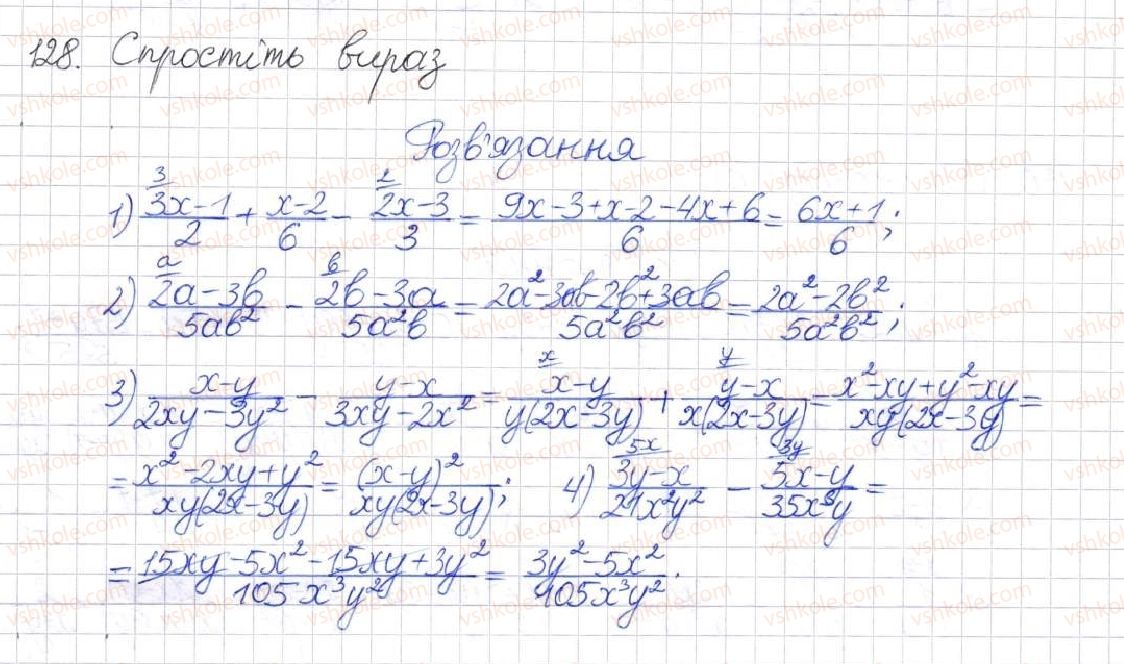 128. Спростіть вираз
Розв'язання
1) (3x-1)/2 (3/) + (x-2)/6 - (2x-3)/3 (2/) = (9x-3+x-2-4x+6)/6 = (6x+1)/6;
2) (2a-3b)/(5ab²) (a/) - (2b-3a)/(5a²b) (b/) = (2a²-3ab-2b²+3ab)/(5a²b²) = (2a²-2b²)/(5a²b²);
3) (x-y)/(2xy-3y²) - (y-x)/(3xy-2x²) = (x-y)/(y(2x-3y)) (x/) + (y-x)/(x(2x-3y)) (y/) = (x²-xy+y²-xy)/(xy(2x-3y)) =
= (x²-2xy+y²)/(xy(2x-3y)) = (x-y)²/(xy(2x-3y)); 4) (3y-x)/(21x²y²) (5x/) - (5x-y)/(35x³y) (3y/) =
= (15xy-5x²-15xy+3y²)/(105x³y²) = (3y²-5x²)/(105x³y²).
vshkole.com